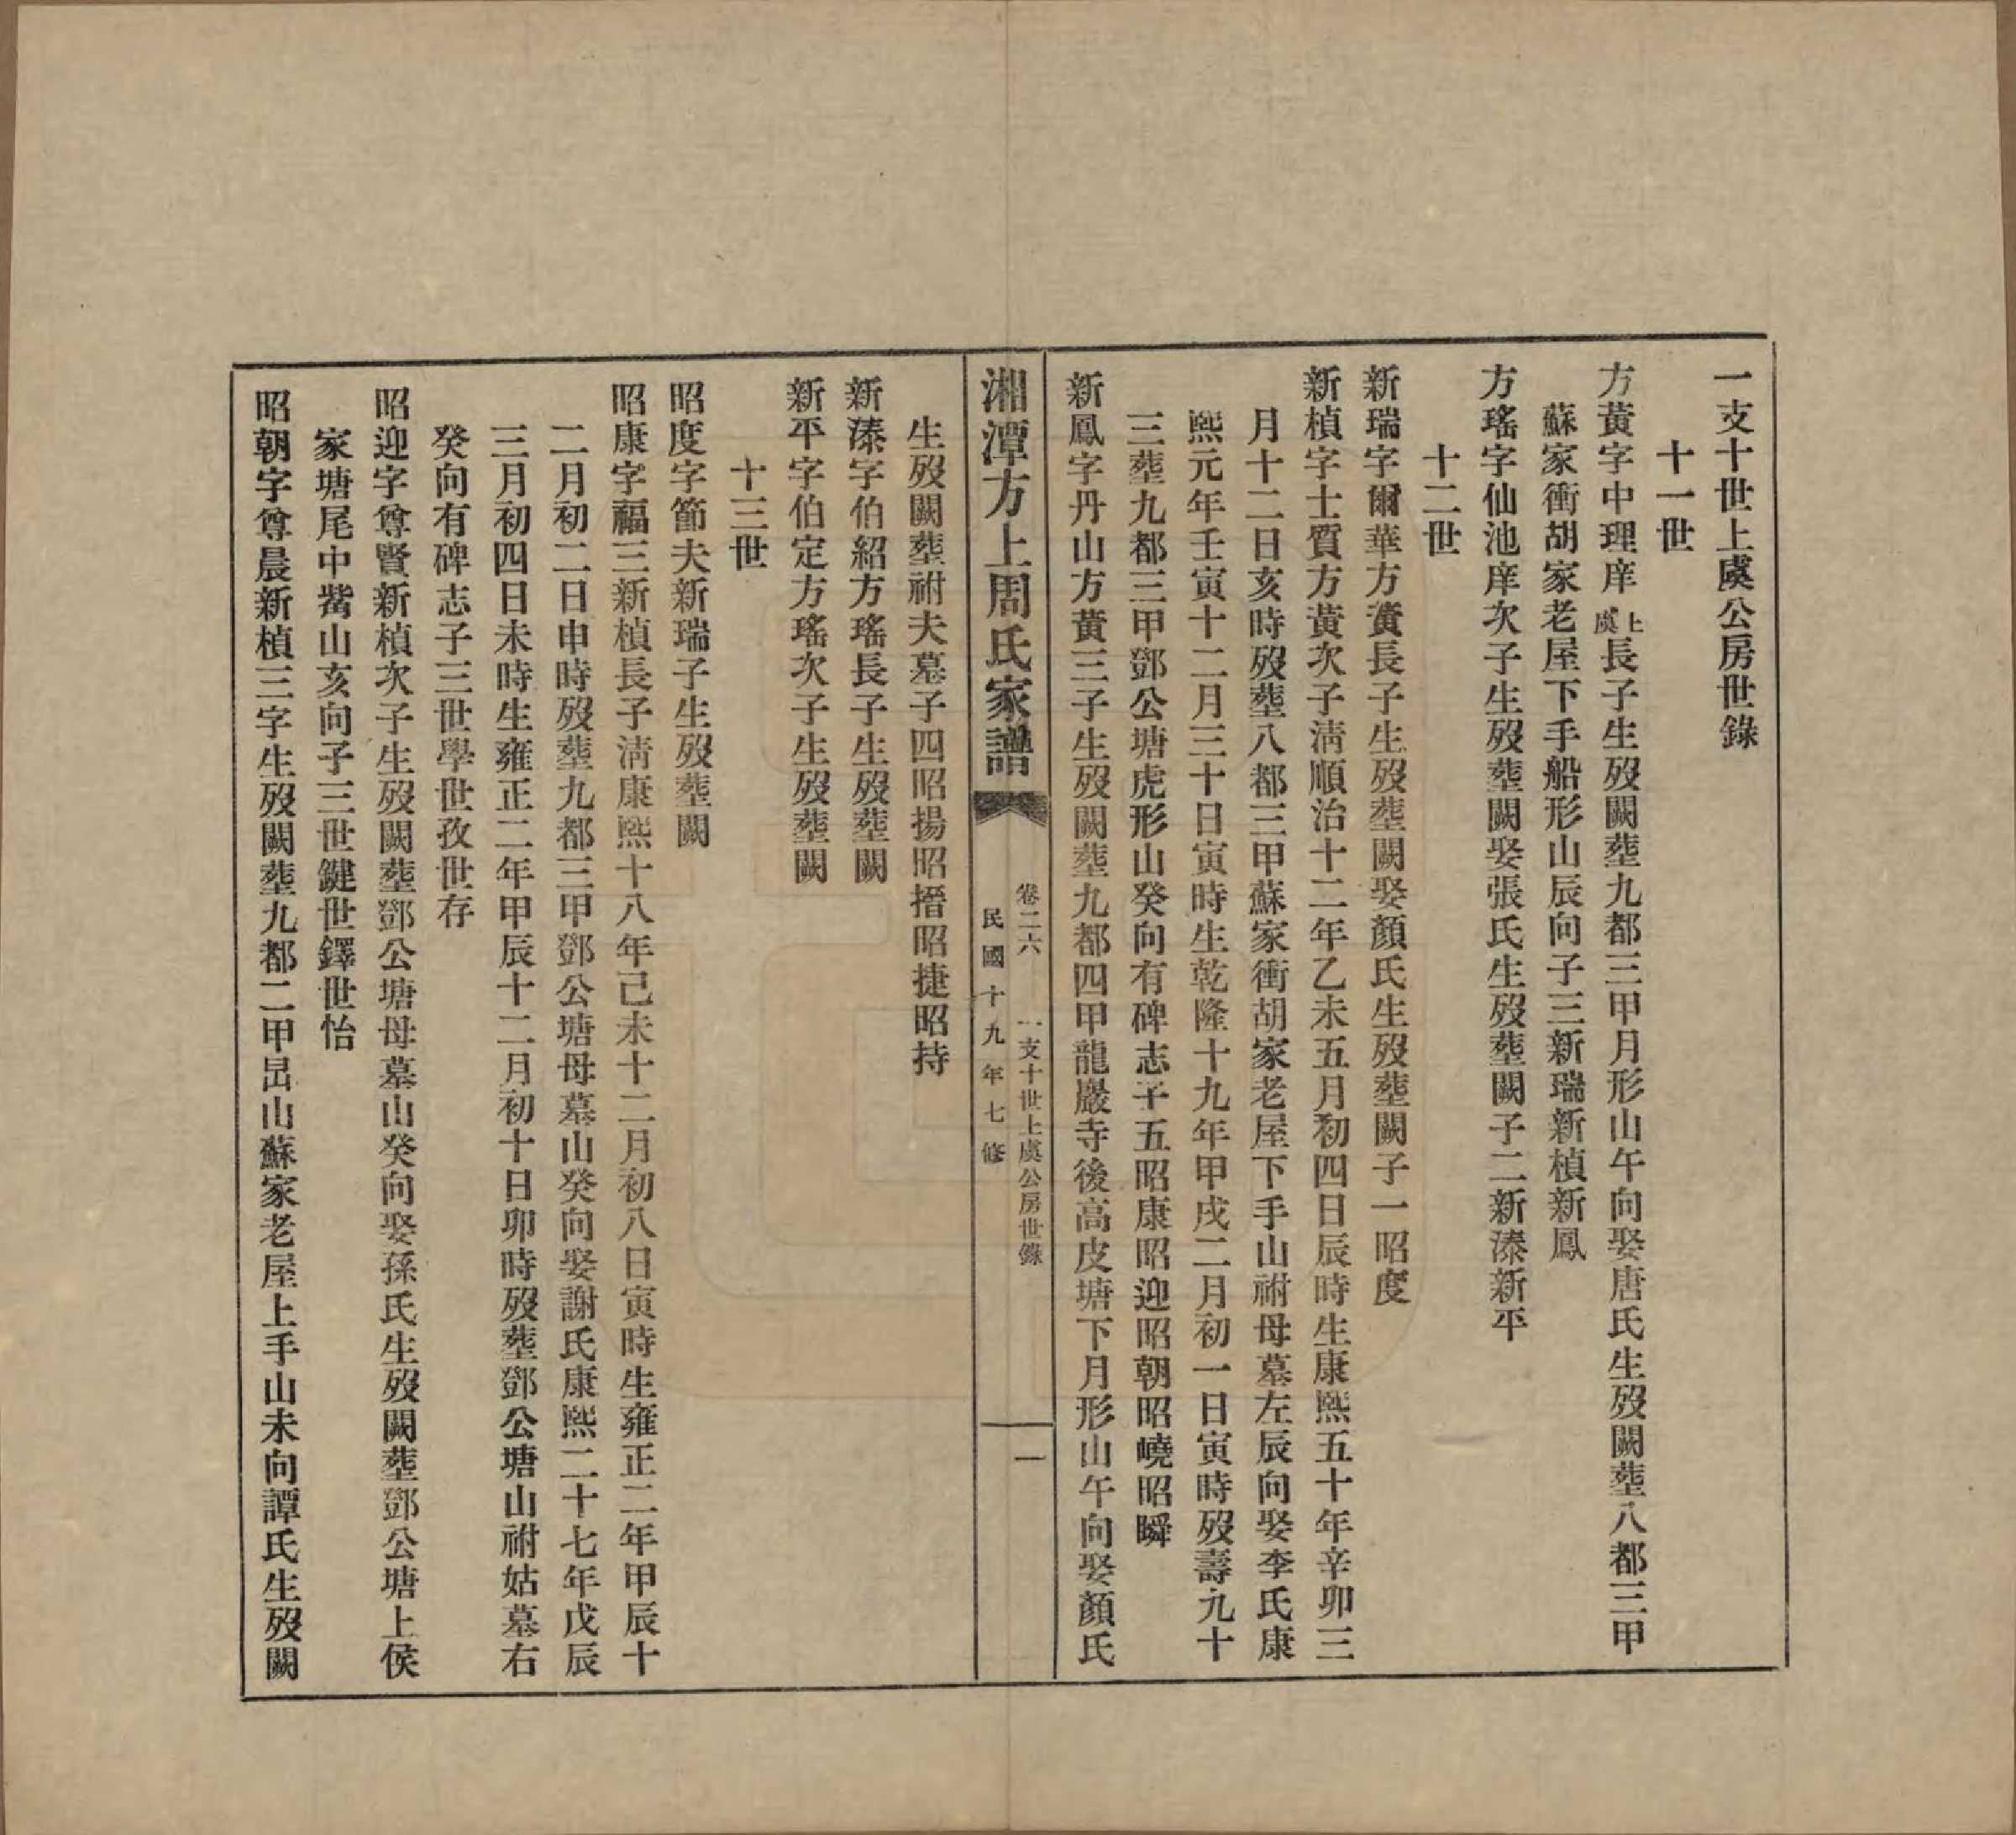 一支十世上虞公房世錄
十一世
方黃字中理庠上虞長子生歿闕葬九都三甲月形山午向娶唐氏生歿闕葬八都三甲
蘇家衝胡家老屋下手船形山辰向子三新瑞新楨新鳳
方瑤字仙池庠次子生歿葬闕娶張氏生歿葬闕子二新溱新平
十二世
新瑞字爾華方黃長子生歿葬闕娶顏氏生歿葬闕子一昭度
新楨字士質方黃次子淸順治十二年乙未五月初四日辰時生康熙五十年辛卯三
月十二日亥時歿葬八都三甲蘇家衝胡家老屋下手山祔母墓左辰向娶李氏康
熙元年壬寅十二月三十日寅時生乾隆十九年甲戌二月初一日寅時歿壽九十
三葬九都三甲鄧公塘虎形山癸向有碑志子五昭康昭迎昭朝昭嶢昭瞬
新鳳字丹山方黃三子生歿闕葬九都四甲龍巖寺後高皮塘下月形山午向娶顏氏
湘潭方上周氏家譜
卷二六 一支十世上虞公房世錄
民國十九年七修
一
生歿闕葬祔夫墓子四昭揚昭搢昭捷昭持
新溱字伯紹方瑤長子生歿葬闕
新平字伯定方瑤次子生歿葬闕
十三世
昭度字節夫新瑞子生歿葬闕
昭康字福三新楨長子淸康熙十八年己未十二月初八日寅時生雍正二年甲辰十
二月初二日申時歿葬九都三甲鄧公塘母墓山癸向娶謝氏康熙二十七年戊辰
三月初四日未時生雍正二年甲辰十二月初十日卯時歿葬鄧公塘山祔姑墓右
癸向有碑志子三世學世孜世存
昭迎字尊賢新楨次子生歿闕葬鄧公塘母墓山癸向娶孫氏生歿闕葬鄧公塘上侯
家塘尾中觜山亥向子三世鍵世鐸世怡
昭朝字尊晨新楨三字生歿闕葬九都二甲昌山蘇家老屋上手山未向譚氏生歿闕